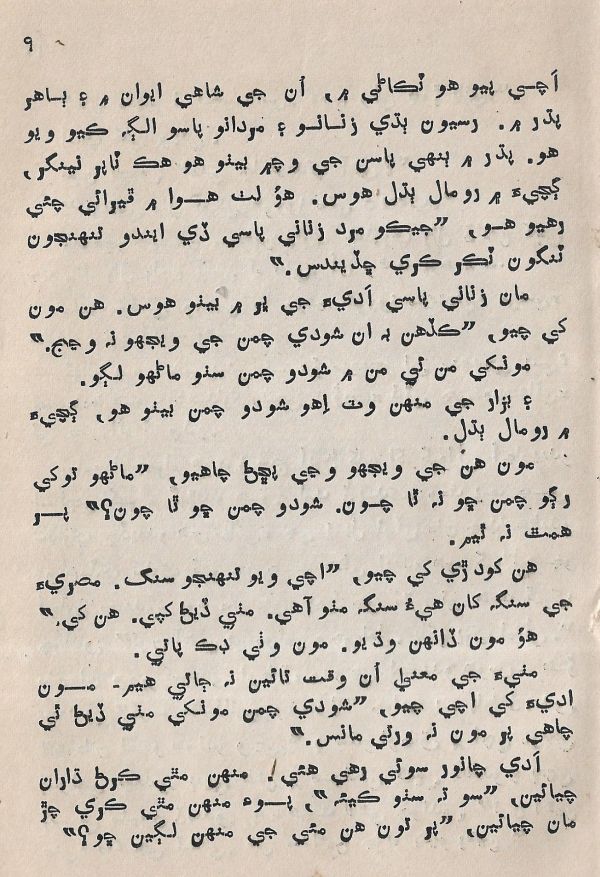 ۹
اَچي پيو هو ٽڪاڻي ۾، اُن جي شاهي ايوان ۾ ۽ ٻاهر
پڌر ۾. رسيون ٻڌي زنانو ۽ مردانو پاسو الڳ ڪيو ويو
هو. پڌر ۾ ٻنهي پاسن جي وچ۾ بيٺو هو هڪ ٽاٻر ڀينگر،
ڳچيءَ ۾ رومال ٻڌل هوس. هوُ لٺ هوا ۾ ڦيرائي چئي
رهيو هو، ”جيڪو مرد زناني پاسي ڏي ايندو تنهنجون
ٽنگون ٽڪر ڪري ڇڏيندس.“
مان زناني پاسي اَديءَ جي ڀر ۾ بيٺو هوس. هن مون
کي چيو، ”ڪڏهن به ان شودي چمن جي ويجهو نه وڃج.“
مونکي من ئي من ۾ شودو چمن سٺو ماڻهو لڳو.
۽ بزار جي منهن وٽ اِهو شودو چمن بيٺو هو، ڳچيءَ
۾ رومال ٻڌل.
مون هن جي ويجهو وڃي پڇڻ چاهيو، ”ماڻهو توکي
رڳو چمن ڇو نه ٿا چون. شودو چمن ڇو ٿا چون؟“ پر
همت نه ٿيم.
هن کودڙي کي چيو، ”اچي ويو تنهنجو سنگ. مصريءَ
جي سنگ کان هيءُ سنگ مٺو آهي. مٺي ڏيڻ کپي. هن کي.“
هوُ مون ڏانهن وڌيو. مون وٺي ڊڪ پاتي.
مٺيءَ جي معنيٰ اُن وقت تائين نه ڄاتي هيم- مون
اديءَ کي اچي چيو، ”شودي چمن مونکي مٺي ڏيڻ ٿي
چاهي پر مون نه ورتي مانس.“
اَدي چانور سوئي رهي هئي. منهن مٿي کڻڻ ڌاران
چيائين، ”سو ته سٺو ڪيئه“، پوءِ منهن مٿي ڪري چڙ
مان چيائين، ”پر تون هن مئي جي منهن لڳين ڇو؟“